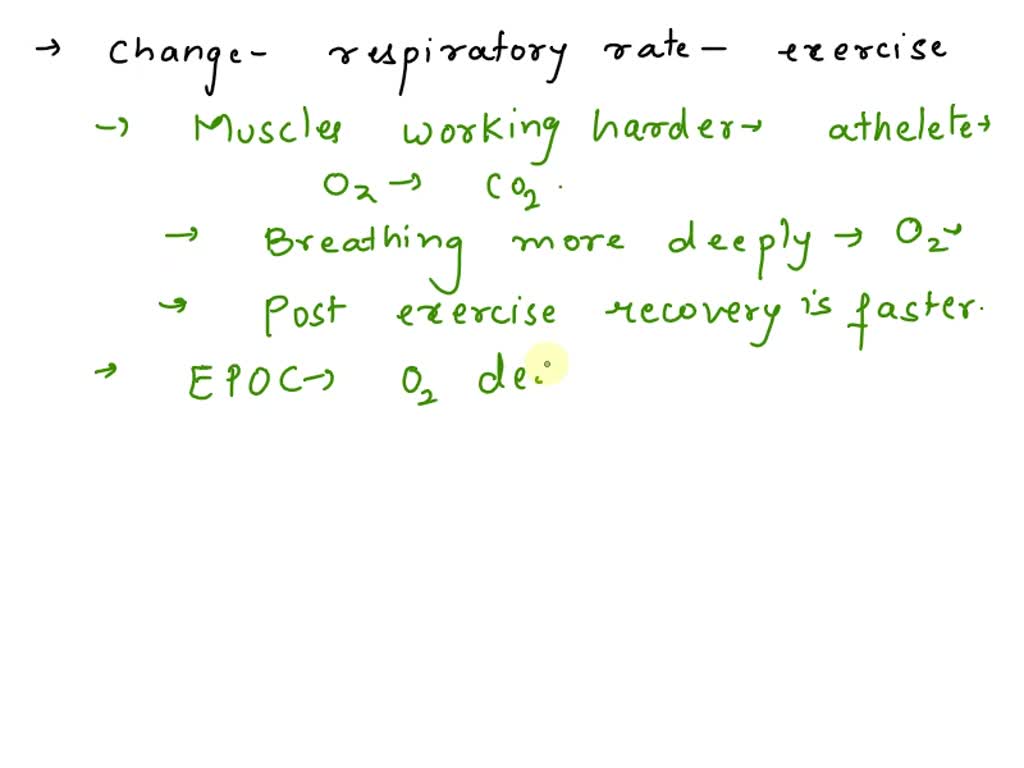 → Change- respiratory rate- exercise
→ Muscles working harder→ athelete→
O₂ → CO₂.
→ Breathing more deeply → O₂
→ Post exercise recovery is faster.
→ EPOC→ O₂